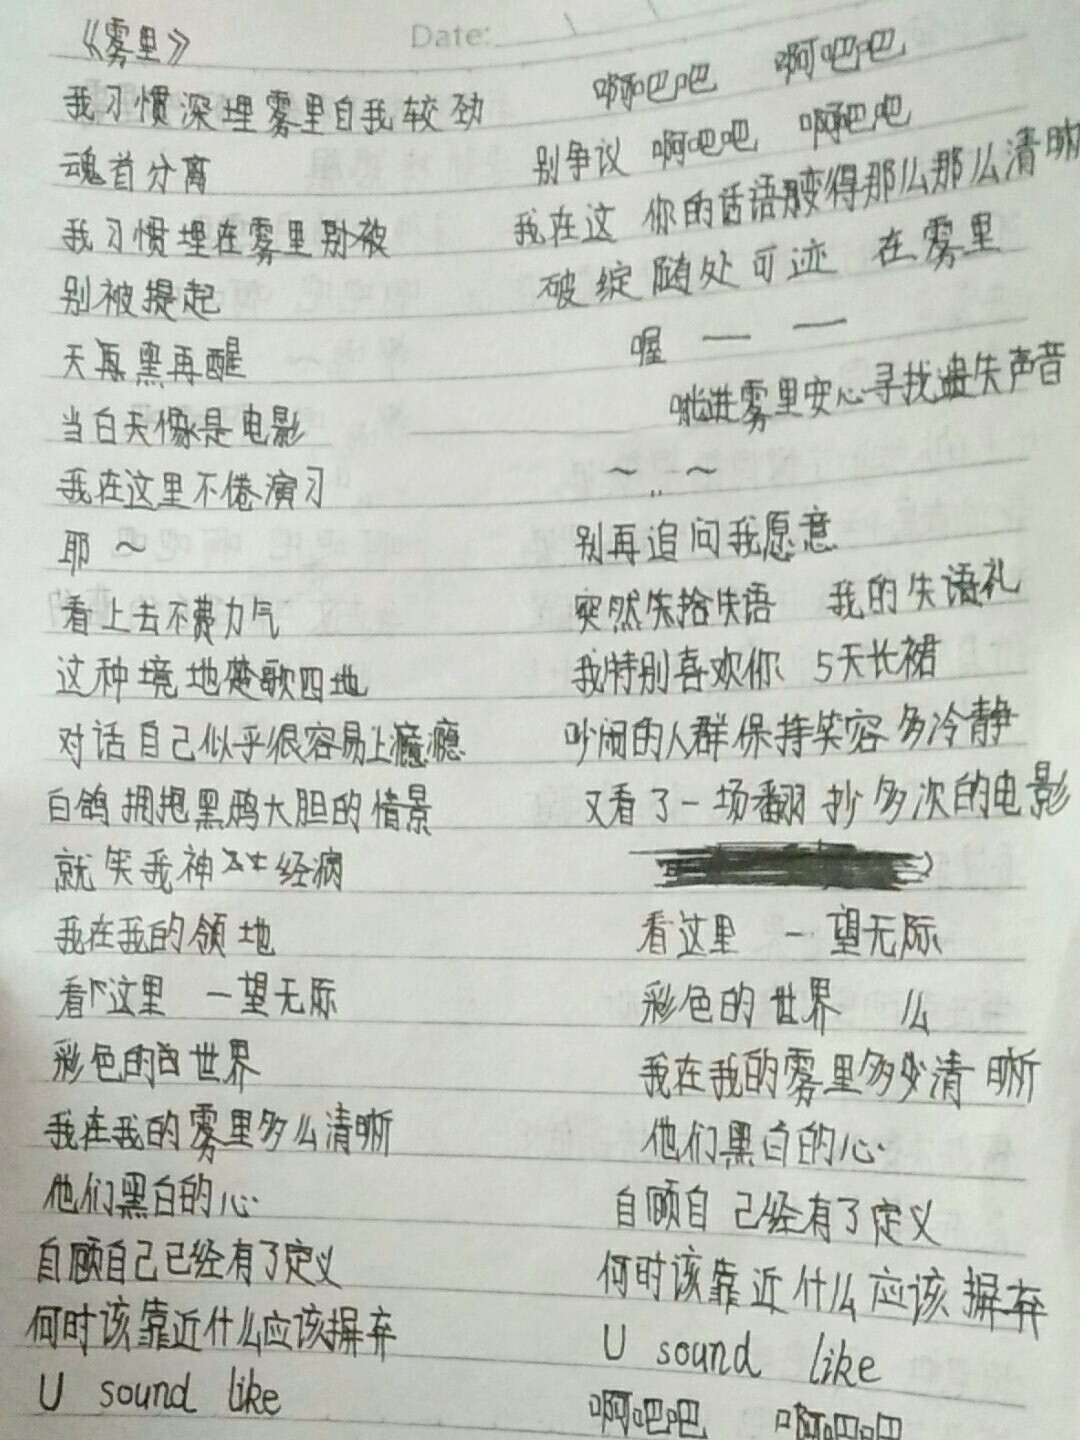 《雾里》
Date:
我习惯深埋雾里自我较劲
魂首分离
我习惯埋在雾里别被
别被提起
天再黑再醒
当白天像是电影
我在这里不倦演习
耶 ～
看上去不费力气
这种境地楚歌四地
对话自己似乎很容易上瘾瘾
白鸽拥抱黑鸦大胆的情景
就笑我神经病
我在我的领地
看这里 一望无际
彩色的世界
我在我的雾里多么清晰
他们黑白的心
自顾自己已经有了定义
何时该靠近什么应该摒弃
U sound like
啊吧吧 啊吧吧
别争议 啊吧吧 啊吧吧
我在这 你的话语变得那么那么清晰
破绽随处可迹 在雾里
喔 — —
跳进雾里安心寻找遗失声音
～ ～
别再追问我愿意
突然失拾失语 我的失语礼
我特别喜欢你 5天长裙
吵闹的人群保持笑容多冷静
又看了一场翻抄多次的电影
看这里 一望无际
彩色的世界 么
我在我的雾里多清晰
他们黑白的心
自顾自 己经有了定义
何时该靠近什么应该摒弃
U sound like
啊吧吧 啊吧吧